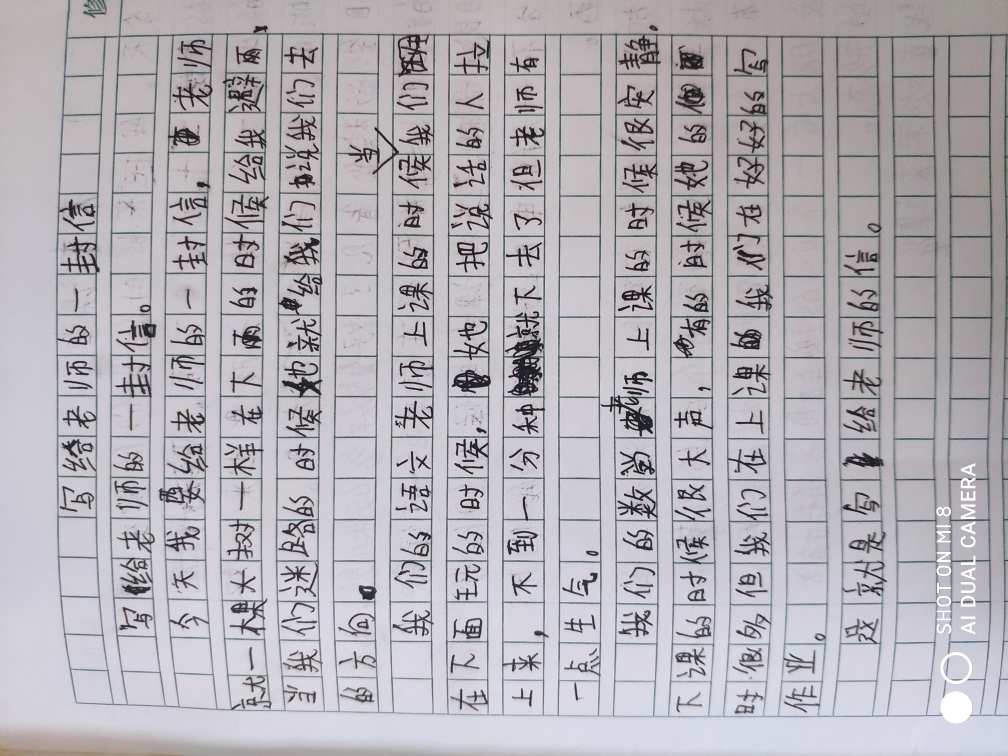 修
写给老师的一封信
写给老师的一封信。
今天我要给老师的一封信，老师
就一棵大树一样在下雨的时候给我避雨，
当我们迷路的时候他就给我们说我们去
的方向。
我们的语文老师上课的时候当我们
在下面玩的时候，她把说话的人拉
上来，不到一分种就下去了但老师有
一点生气。
我们的数学老师上课的时候很安静。
下课的时候很大声，有的时候她的
时很多但我们在上课的我们在好好好的写
作业。
这就是写给老师的信。
SHOT ON MI 8
AI DUAL CAMERA